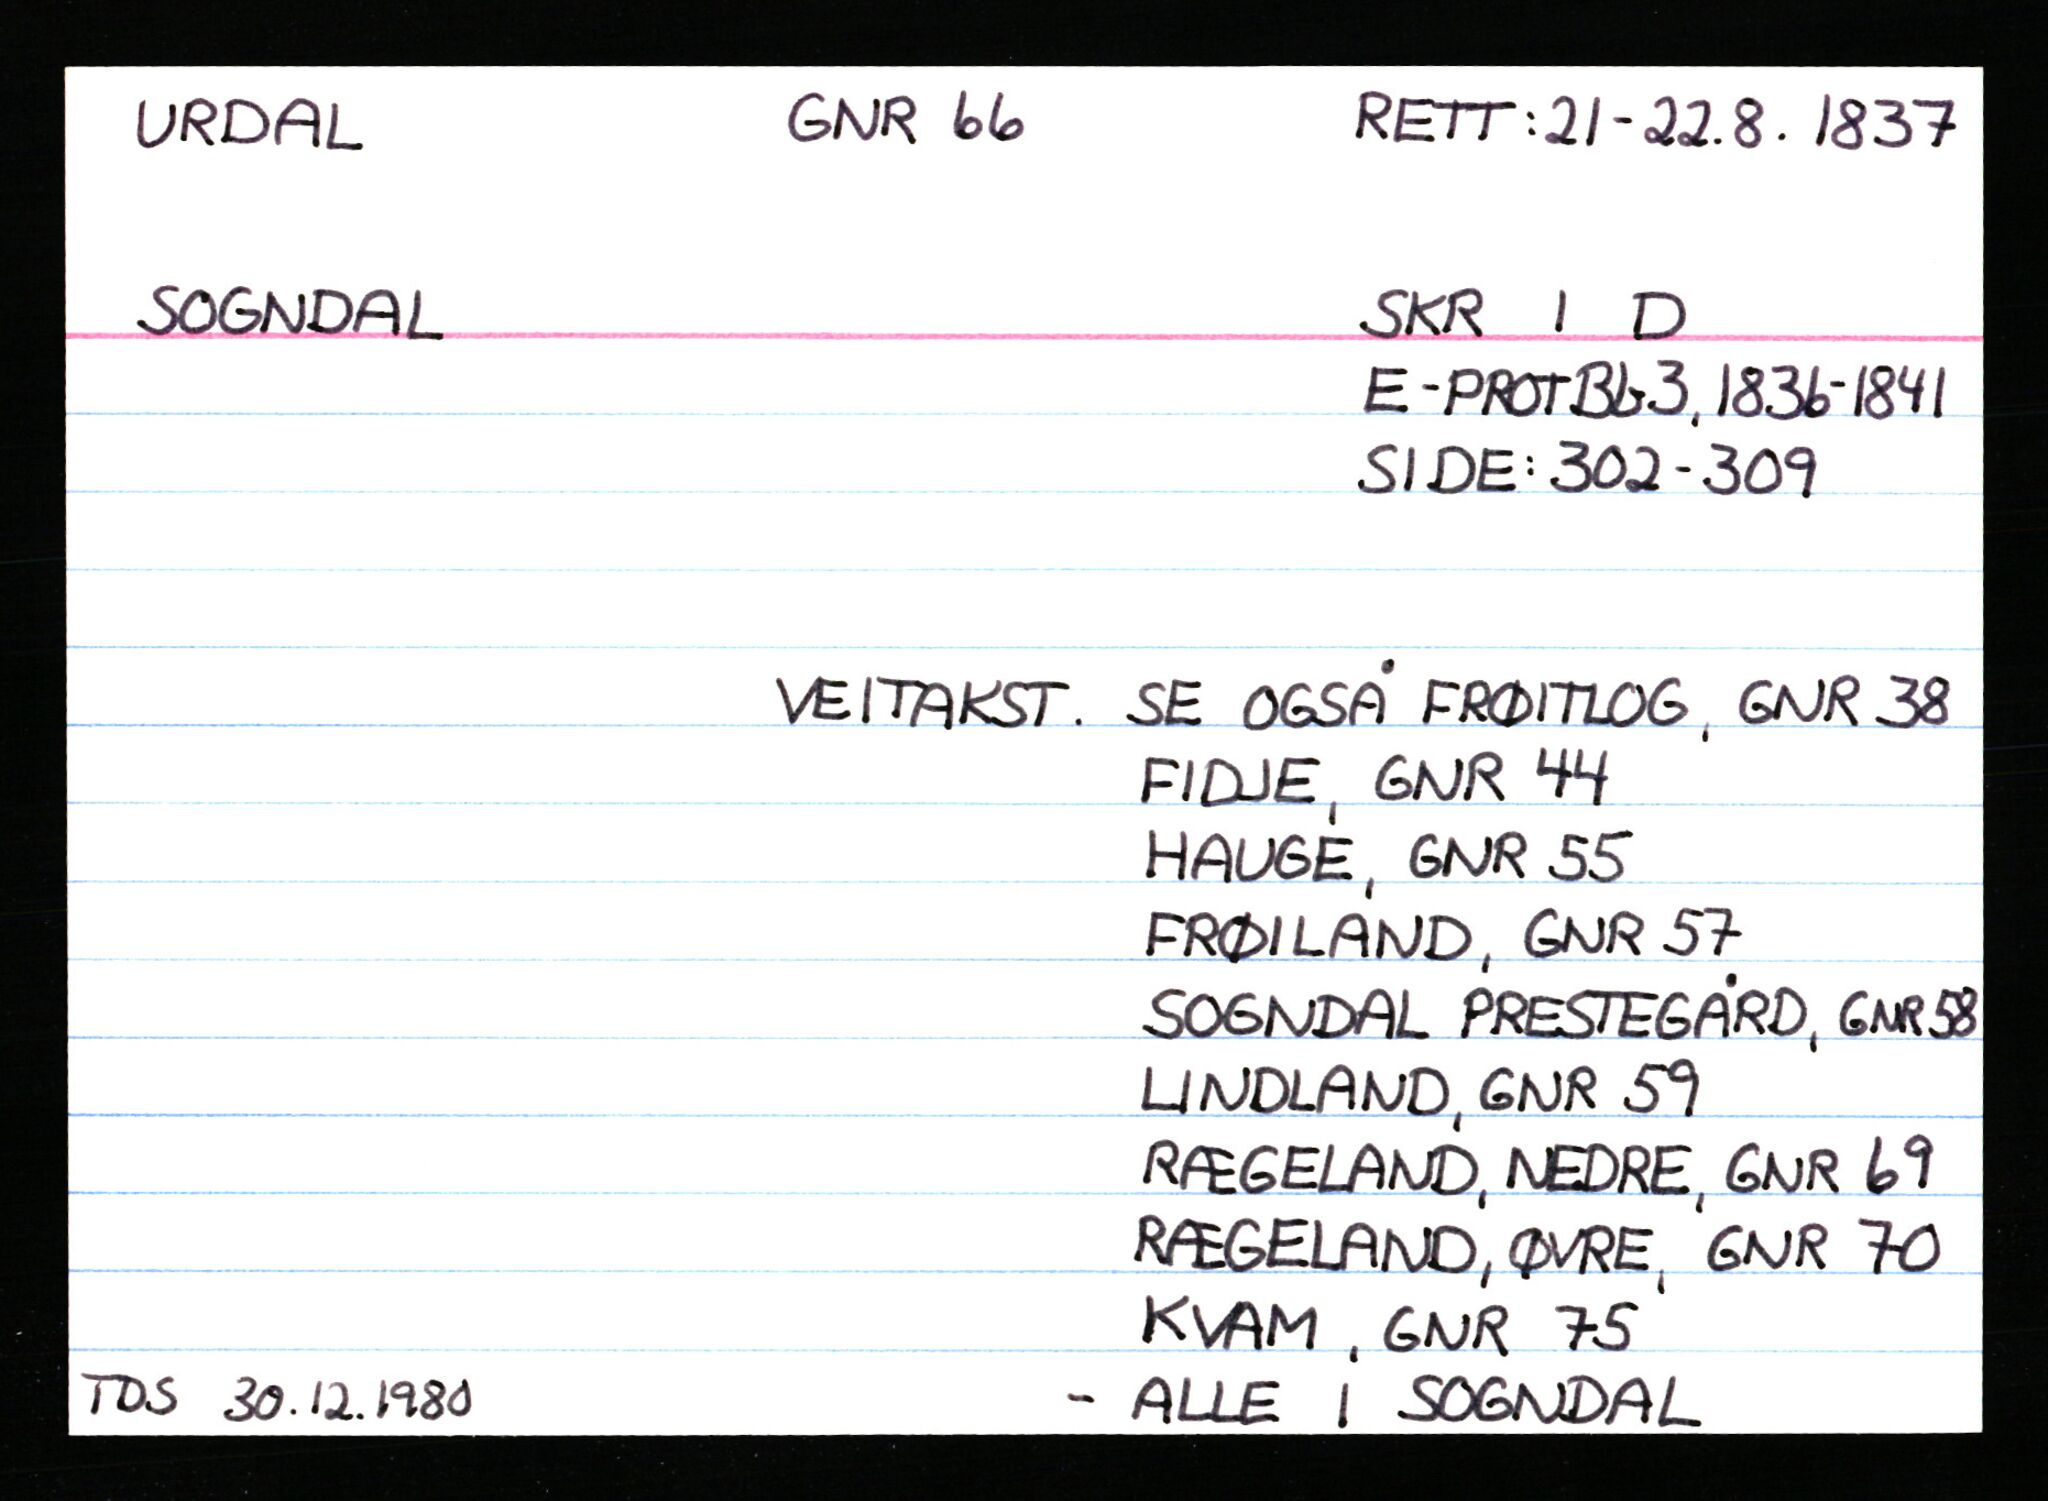 URDAL GNR 66 RETT: 21-22.8. 1837
SOGNDAL SKR I D
E-PROTBG3, 1836-1841
SIDE: 302-309
VEITAKST. SE OGSÅ FRØITLOG, GNR 38
FIDJE, GNR 44
HAUGE, GNR 55
FRØILAND, GNR 57
SOGNDAL PRESTEGÅRD, GNR 58
LINDLAND, GNR 59
RÆGELAND, NEDRE, GNR 69
RÆGELAND, ØVRE, GNR 70
KVAM, GNR 75
TDS 30.12.1980 - ALLE I SOGNDAL